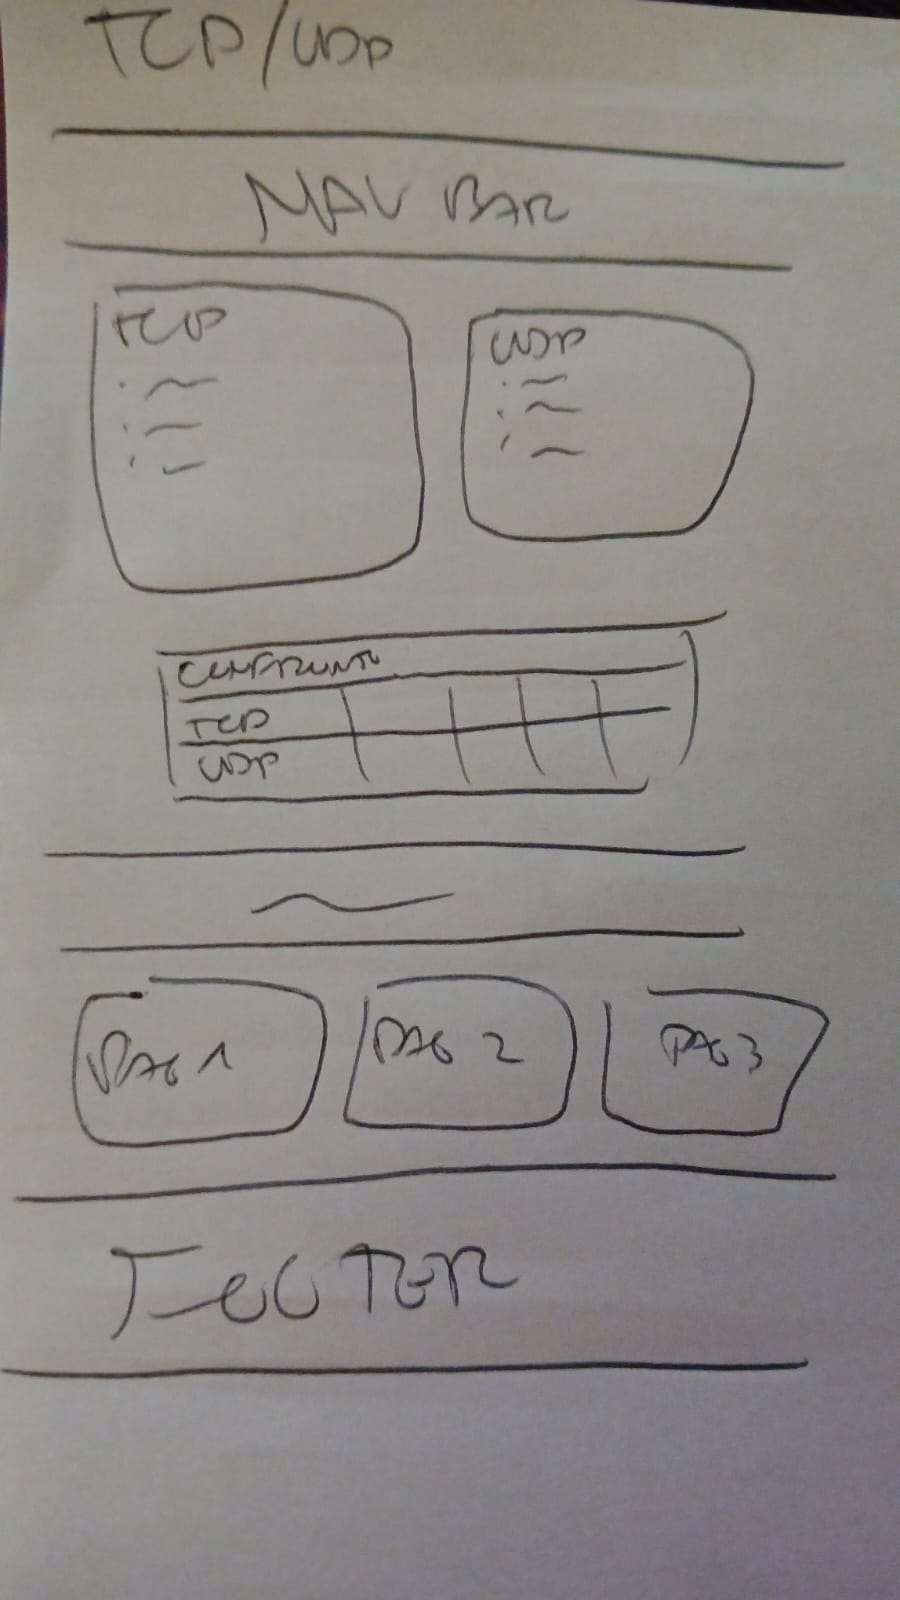 TCP/UDP
NAV BAR
TCP
UDP
CONFRONTO
TCP
UDP
PAG 1
PAG 2
PAG 3
FOOTER